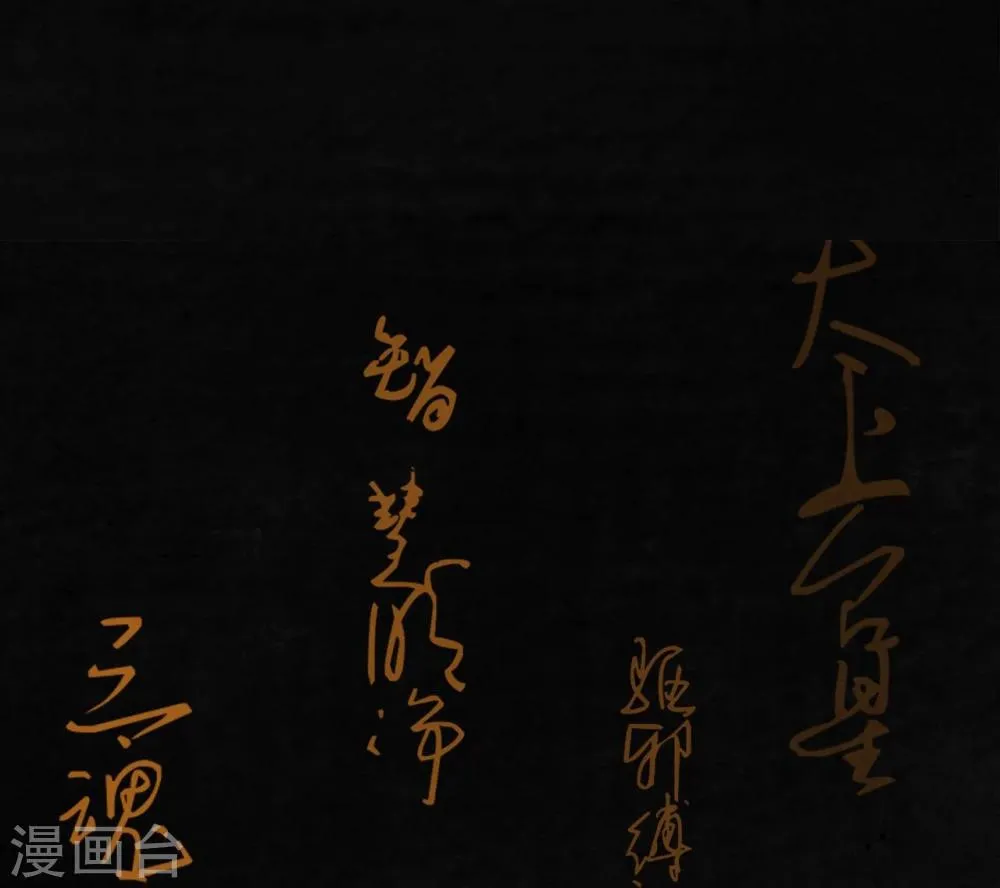 太上台星
驱邪缚
智慧明净
三魂
漫画台